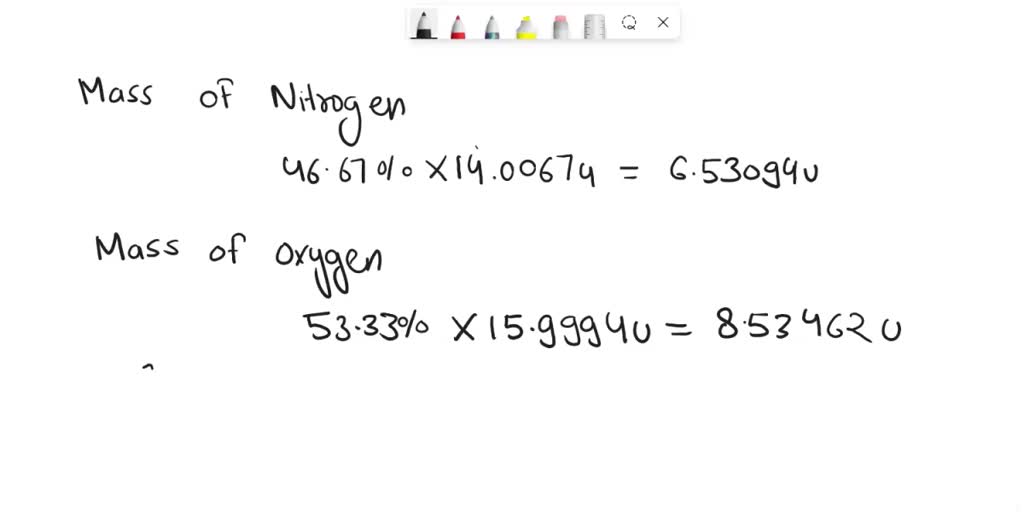 Mass of Nitrogen
46.67% X 14.00674 = 6.53094u
Mass of Oxygen
53.33% X 15.9994u = 8.53462 u